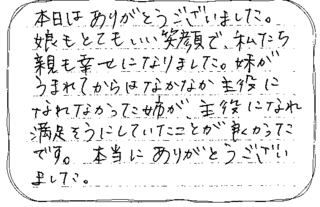 本日は ありがとうございました。
娘もとてもいい笑顔で、私たち
親も幸せになりました。妹が
うまれてからはなかなか主役に
なれなかった姉が、主役になれ
満足そうにしていたことが良かった
です。 本当に ありがとうござい
ました。